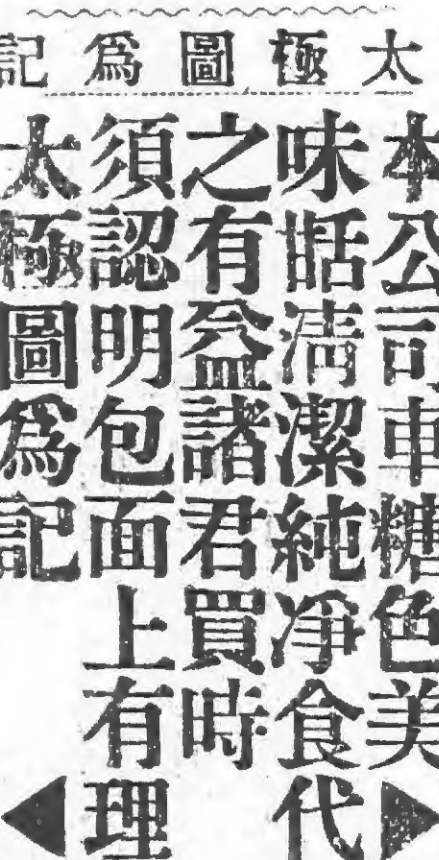 太極圖爲記
本公司車糖色美
味甛清潔純淨食
之有益諸君買時
須認明包面上有
太極圖爲記
代理